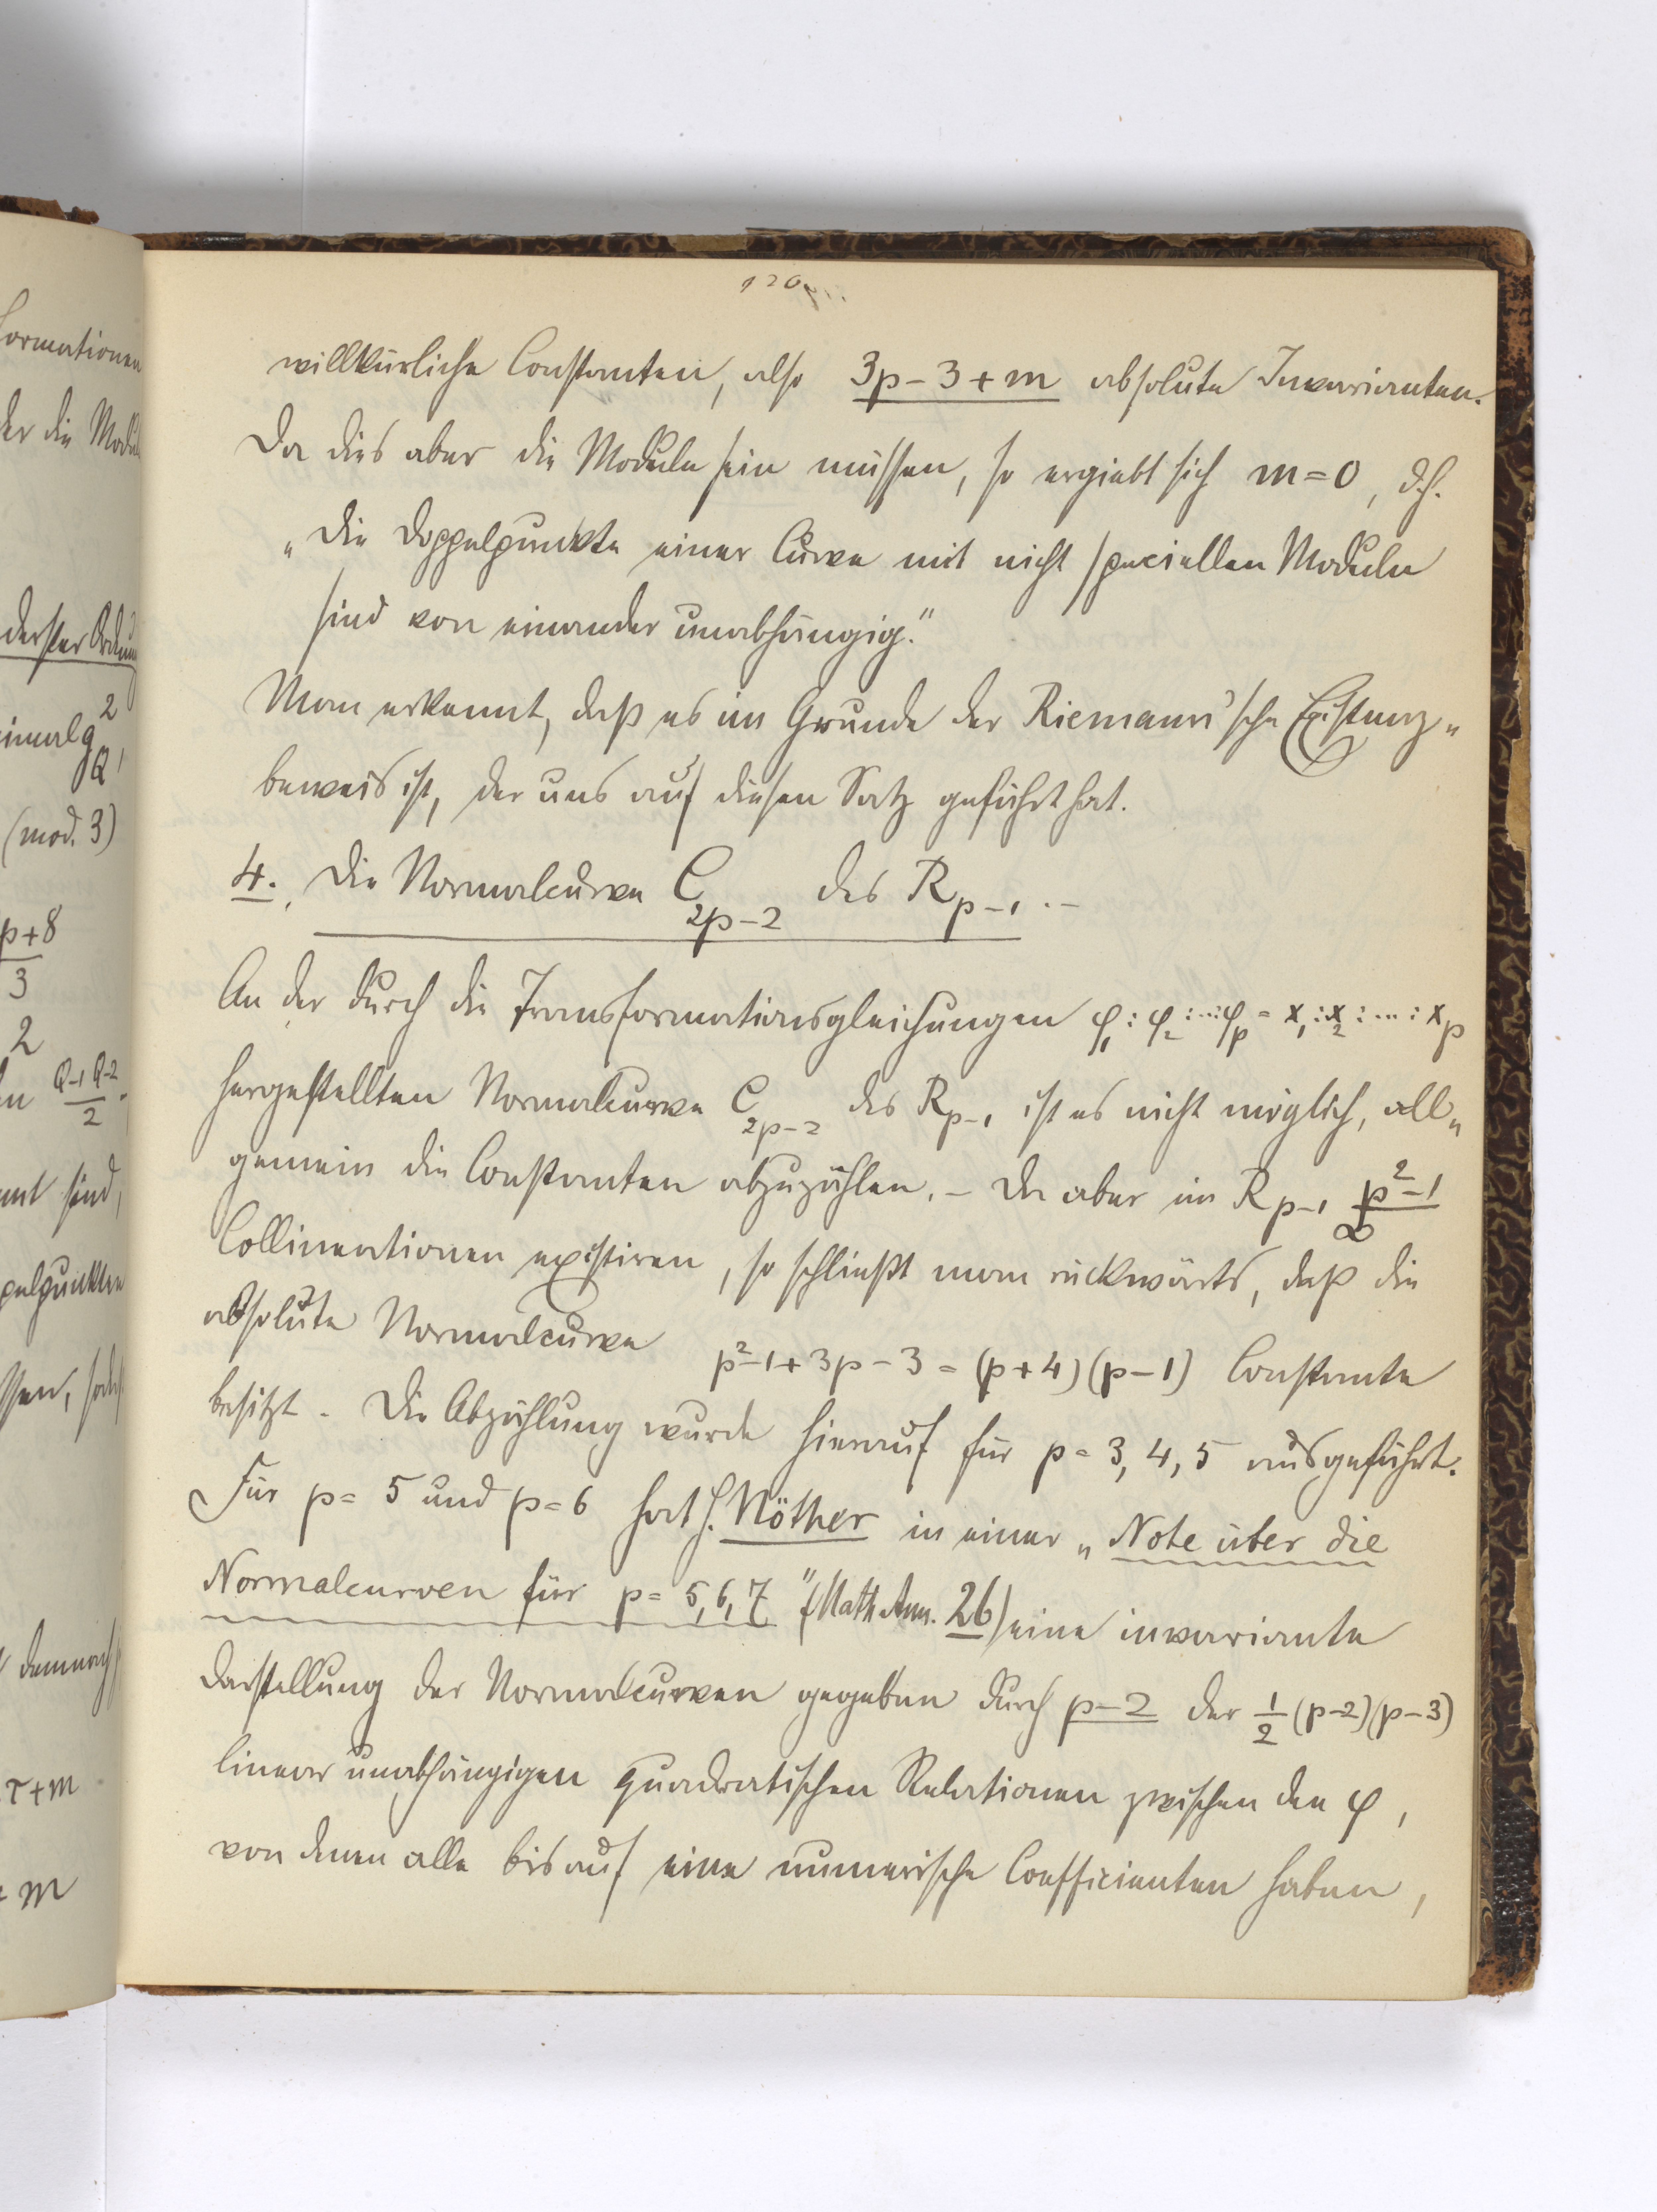 120
willkürliche Constanten, also 3p-3+m absolute Invarianten.
Da dies aber die Moduln sein müssen, so ergiebt sich m=0, d.h.
„Die Doppelpunkte einer Curve mit nicht speciellen Moduln
sind von einander unabhängig."
Man erkennt, daß es im Grunde der Riemann'sche Existenz-
beweis ist, der uns auf diesen Satz geführt hat.
4. Die Normalcurve C_{2p-2} des R_{p-1}.-
An der durch die Transformationsgleichungen φ_1:φ_2:...:φ_p = x_1:x_2:...:x_p
hergestellten Normalcurve C_{2p-2} des R_{p-1} ist es nicht möglich, all-
gemein die Constanten abzuzählen. - Da aber im R_{p-1} ∞^{p^2-1}
Collineationen existiren, so schließt man rückwärts, daß die
absolute Normalcurve p^2-1+3p-3=(p+4)(p-1) Constante
besitzt. Die Abzählung wurde hierauf für p=3,4,5 ausgeführt.
Für p=5 und p=6 hat H. Nöther in einer „Note über die
Normalcurven für p=5,6,7" (Math. Ann. 26) eine invariante
Darstellung der Normalcurven gegeben durch p-2 der 1/2 (p-2)(p-3)
linear unabhängigen quadratischen Relationen zwischen den φ,
von denen alle bis auf eine numerische Coefficienten haben,
ormationen
der die Modul
derster Ordnung
(mod. 3)
p+8
3
2
Q-1 Q-2
2
sind,
pelpunkten
demnach
τ+m
+m